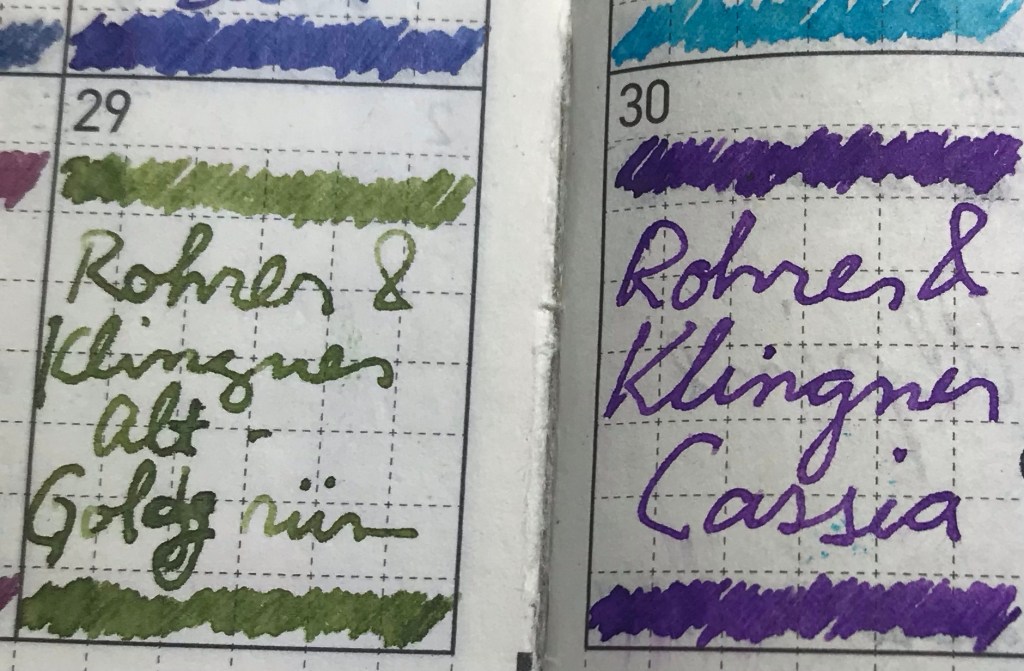 29
Rohrer &
Klingner
Alt -
Goldgrün
30
Rohrer &
Klingner
Cassia